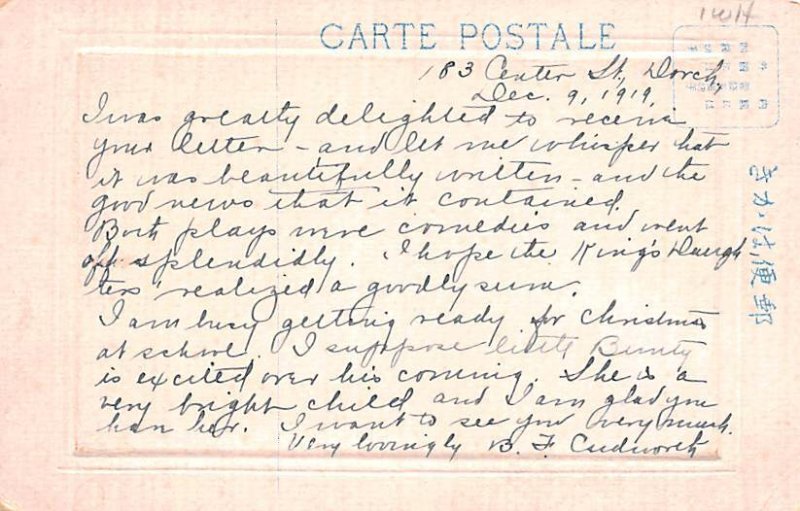 CARTE POSTALE
183 Center St, Dorch,
Dec. 9, 1919.
I was greatly delighted to receive
your letter - and let me whisper that
it was beautifully written - and the
good news that it contained.
Both plays were comedies and went
off splendidly. I hope the King's Daugh
ters realized a goodly sum.
I am busy getting ready for Christmas
at school. I suppose little Bunty
is excited over his coming. She is a
very bright child and I am glad you
have her. I want to see you very much.
Very lovingly B. F. Cudworth
きかは便郵